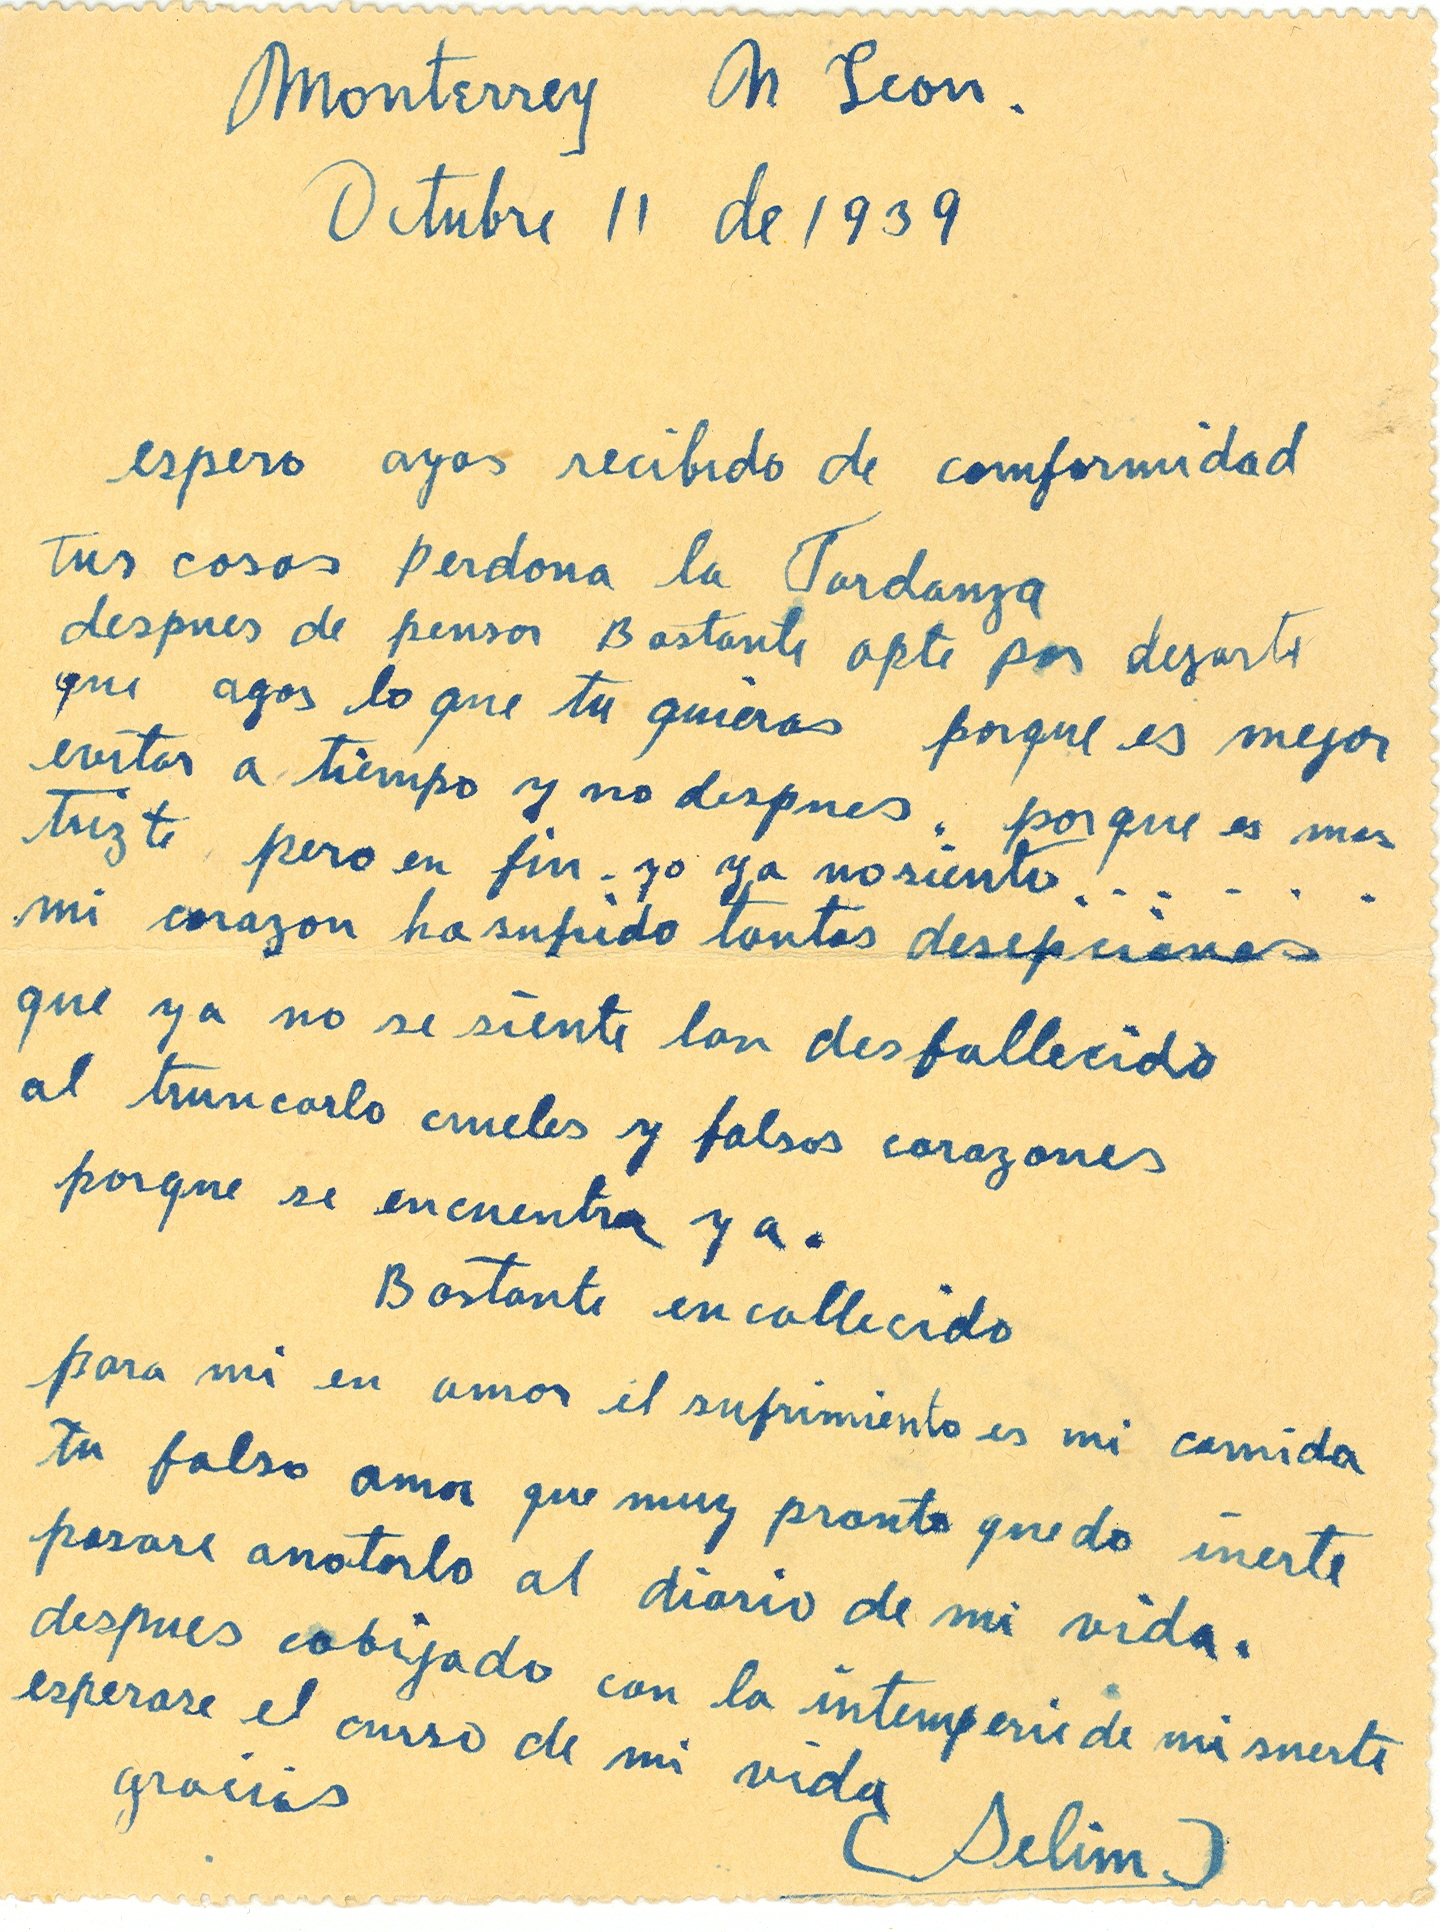 Monterrey N Leon.
Octubre 11 de 1939
espero ayas recibido de comformidad
tus cosas perdona la Tardanza
despues de pensar Bastante opte por dejarte
que agas lo que tu quieras porque es mejor
evitar a tiempo y no despues. porque es mas
trizte pero en fin. yo ya no siento. . . . . . .
mi corazon ha sufrido tantas desepciones
que ya no se siente tan desfallecido
al truncarlo crueles y falsos corazones
porque se encuentra ya.
Bastante encallecido
para mi en amor el sufrimiento es mi comida
tu falso amor que muy pronto quedo inerte
pasare anotarlo al diario de mi vida.
despues cobijado con la intemperie de mi suerte
esperare el curso de mi vida
gracias
(Selim)